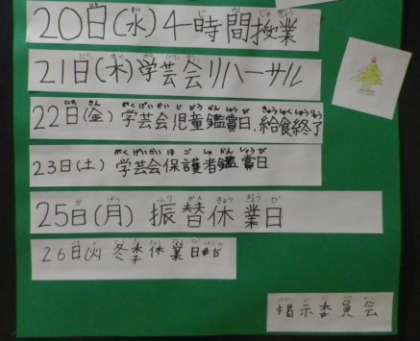 20日(水)4時間授業
21日(木)学芸会リハーサル
22日(金)学芸会児童鑑賞日、給食終了
23日(土)学芸会保護者鑑賞日
25日(月)振替休業日
26日(火)冬季休業日
掲示委員会